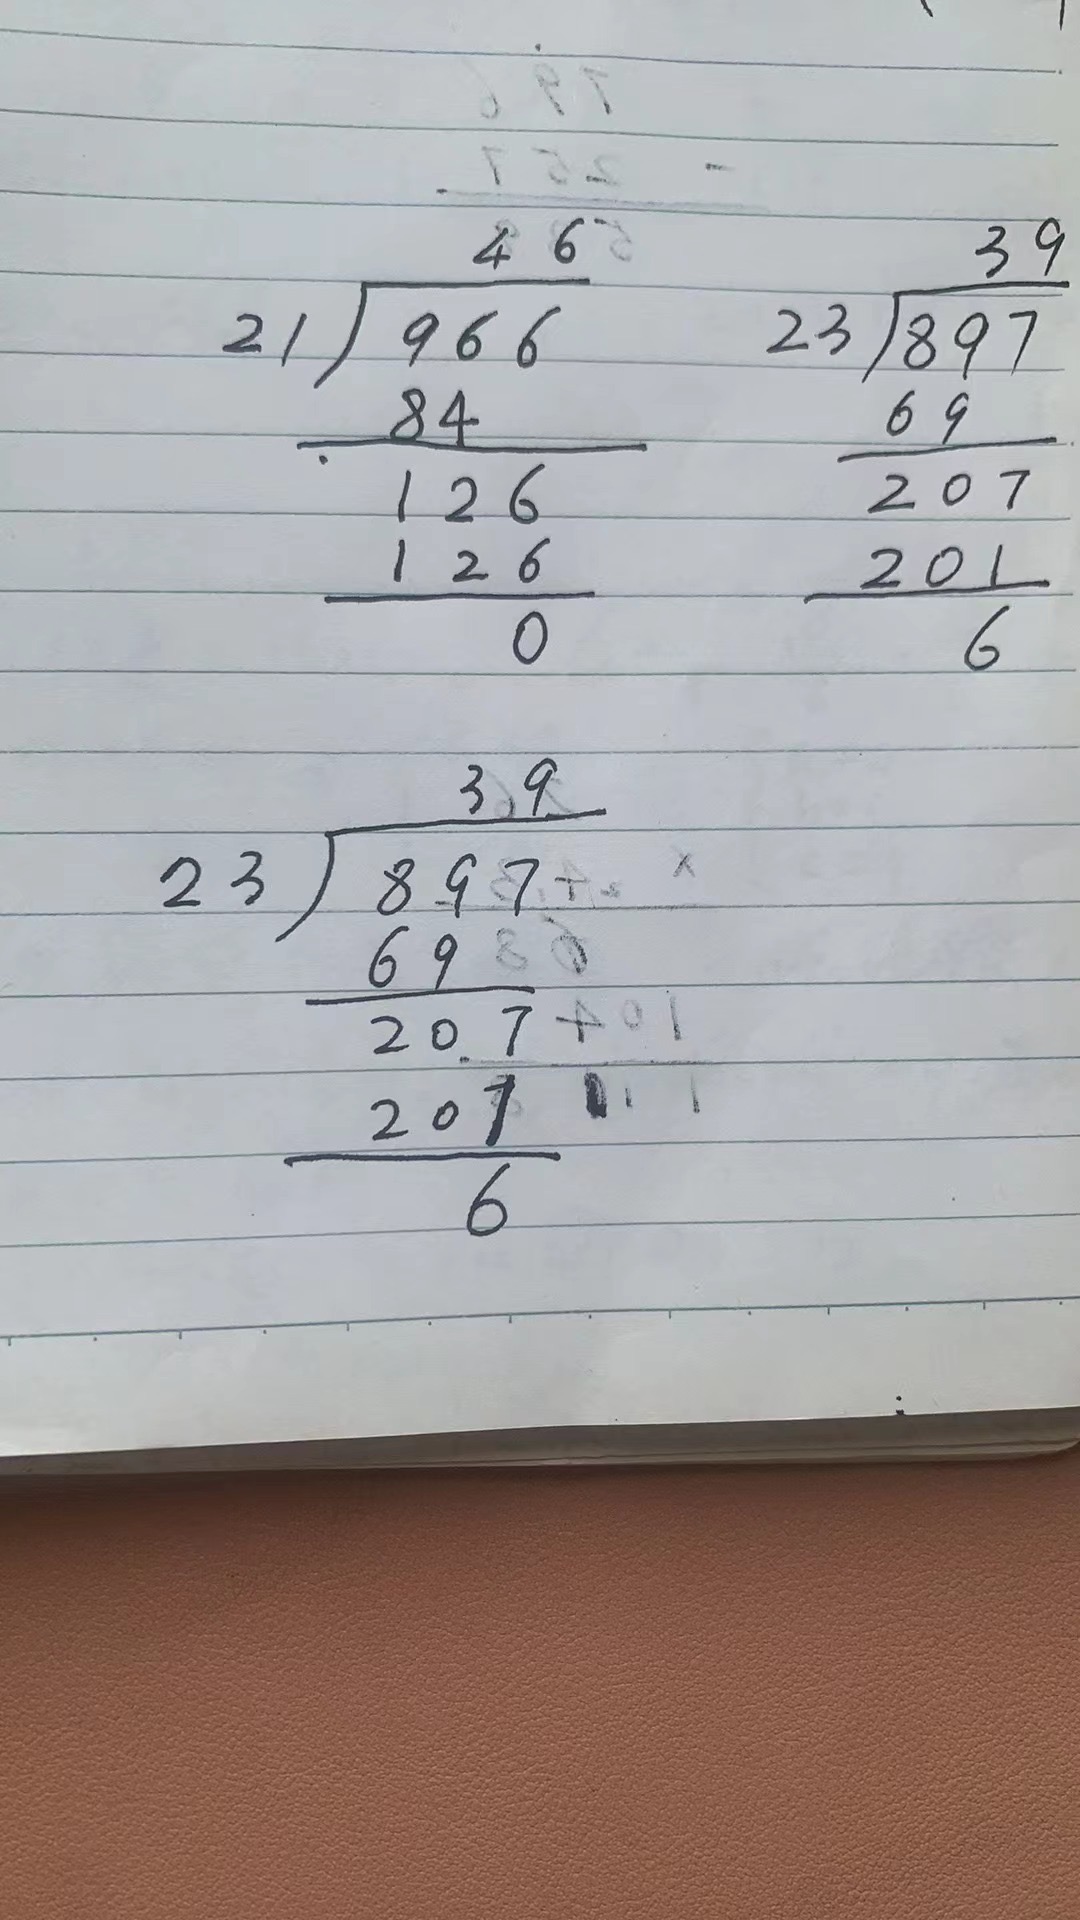 46
21)966
84
126
126
0
39
23)897
69
207
201
6
39
23)897
69
207
201
6